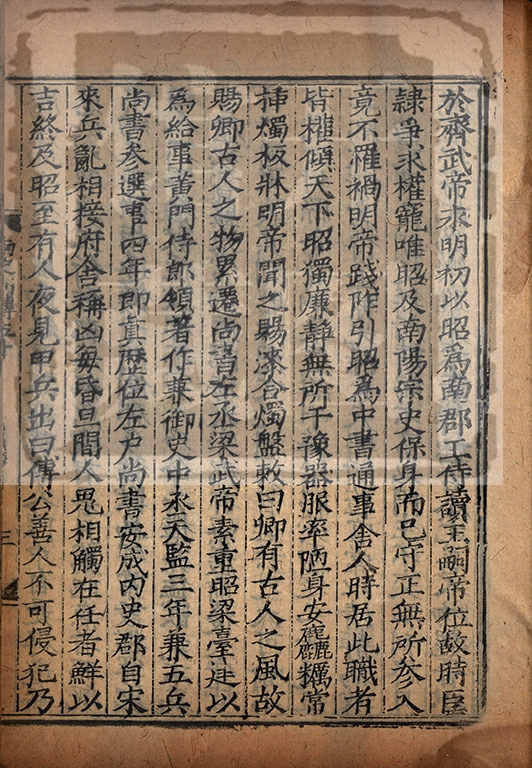 於齊武帝永明初以昭為南郡王侍讀王嗣帝位故時臣
隷爭求權寵唯昭及南陽宗史保身而已守正無所參入
竟不罹禍明帝踐阼引昭為中書通事舍人時居此職者
皆權傾天下昭獨廉靜無所干豫器服率陋身安麤糲常
揷燭板牀明帝聞之賜漆合燭盤敕曰卿有古人之風故
賜卿古人之物累遷尚書左丞梁武帝素重昭梁臺建以
為給事黃門侍郎領著作兼御史中丞天監三年兼五兵
尚書參選事四年即真歴位左户尚書安成内史郡自宋
來兵亂相接府舍稱凶每昏旦間人鬼相觸在任者鮮以
吉終及昭至有人夜見甲兵出曰傅公善人不可侵犯乃
三